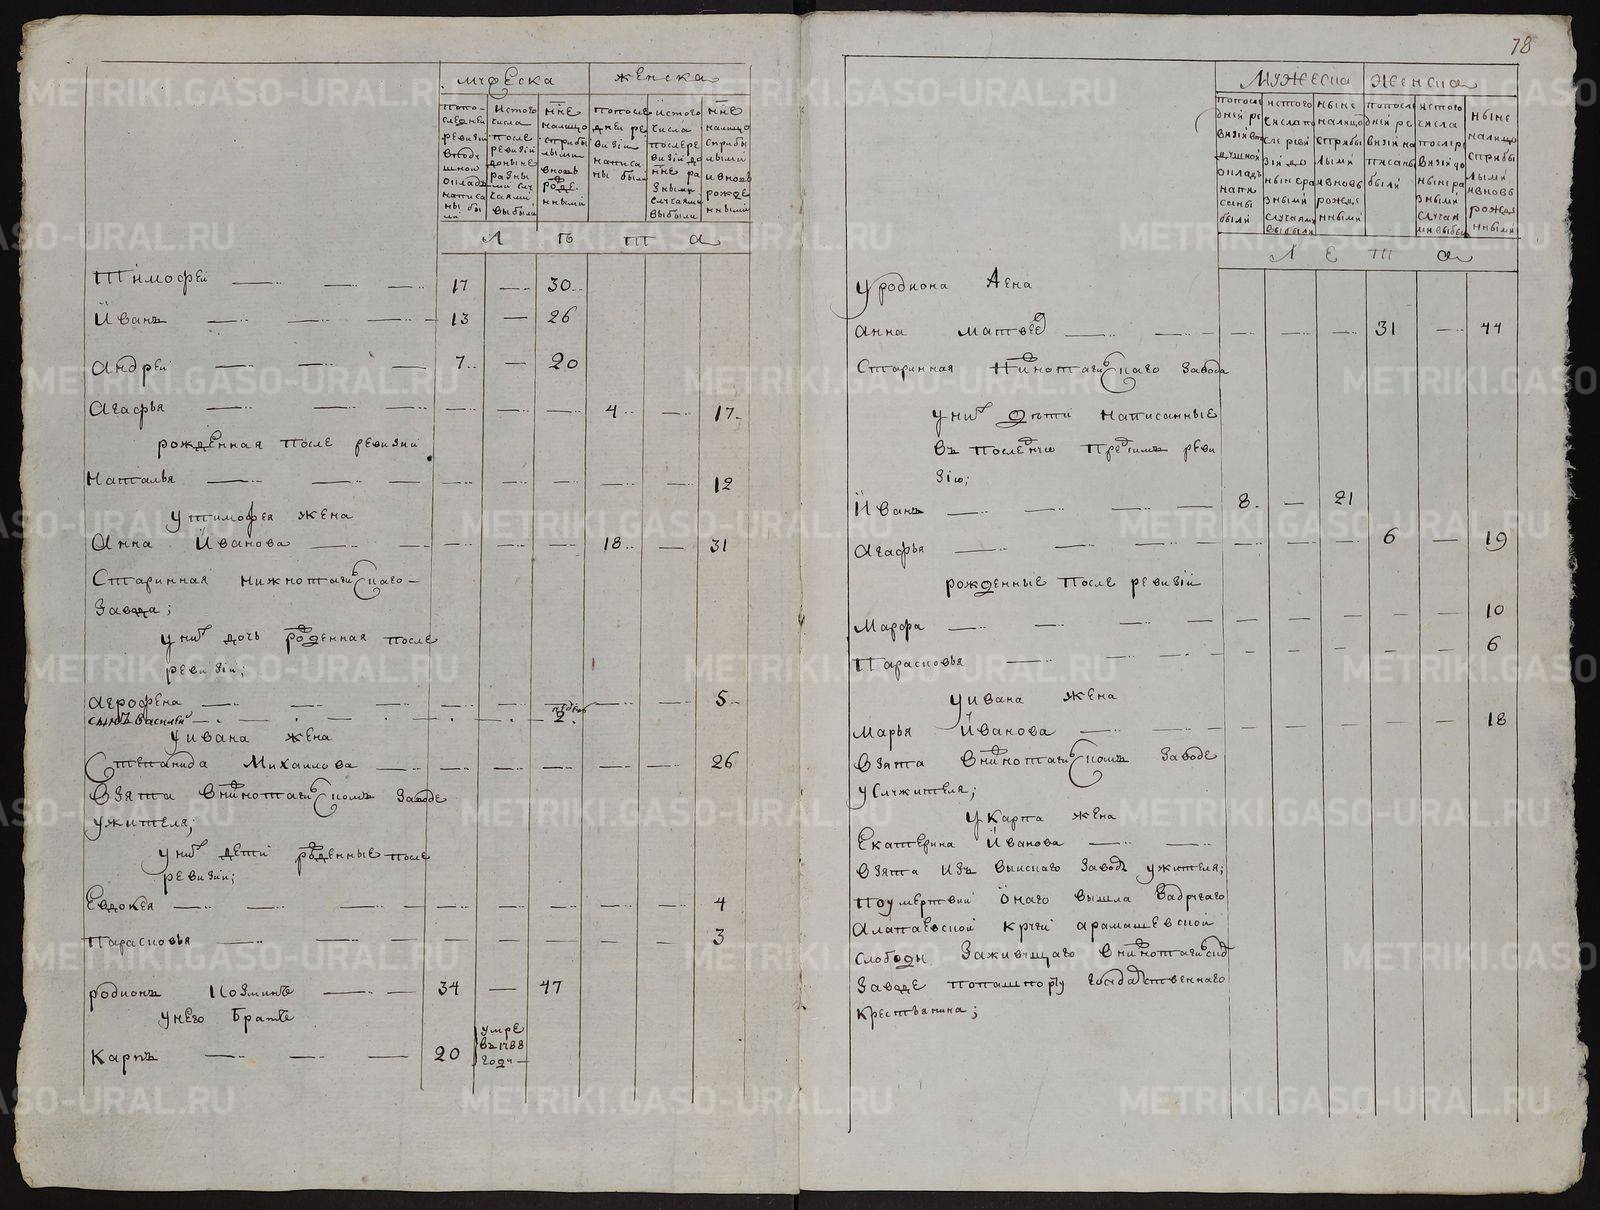 78
мужеска женска
попоследней ревизии вподушной окладъ написаны были
истого числа после ревизии доныне разными случаями выбыли
нне налицо сприбылыми вновь рожденными
попоследней ревизии написаны были
истого числа послеревизии до нне разными случаями выбыли
нне налицо сприбылыми ивновь рожденными
Лѣта
Тимофей 17 — 30
Иванъ 13 — 26
Андрей 7 — 20
Агафья 4 — 17
рожденная после ревизии
Наталья 12
у тимофея жена
Анна Иванова 18 — 31
Старинная нижнотагильскаго
завода;
у них дочь рожденная после
ревизии;
агрофена 5
сынъ Василий 2 недели
у ивана жена
Степанида Михаилова 26
взята внижнотагильскомъ заводе
ужителя;
у них дети рожденные после
ревизии;
Евдокея 4
парасковья 3
родионъ Козминъ 34 — 47
у него братъ
Карпъ 20 умре въ 1788 году
мужеска женска
попоследней ревизии вподушной окладъ написаны были
исторо числа после ревизии до ныне разными случаями выбыли
ныне налицо сприбылыми ивновь рожденными
попоследней ревизии написаны были
исого числа послеревизии до ныне разными случаями выбыли
ныне налицо сприбылыми ивновь рожденными
Лета
у родиона жена
анна матвеед 31 — 44
Старинная нижнотагильскаго завода
у них дѣти написанные
въ последнюю пред симъ реви
зию;
Иванъ 8 — 21
агафья 6 — 19
рожденные после ревизии
Марфа 10
Парасковья 6
у ивана жена
марья Иванова 18
взята внижнотагильскомъ заводе
у служителя;
у карпа жена
Екатерина Иванова
взята изъ выискаго завода ужителя;
поумертвии онаго вышла задругаго
алапаевской кручи арамашевской
слободы заживущаго внижнотагильском
заводе попашпорту государственнаго
крестьянина;